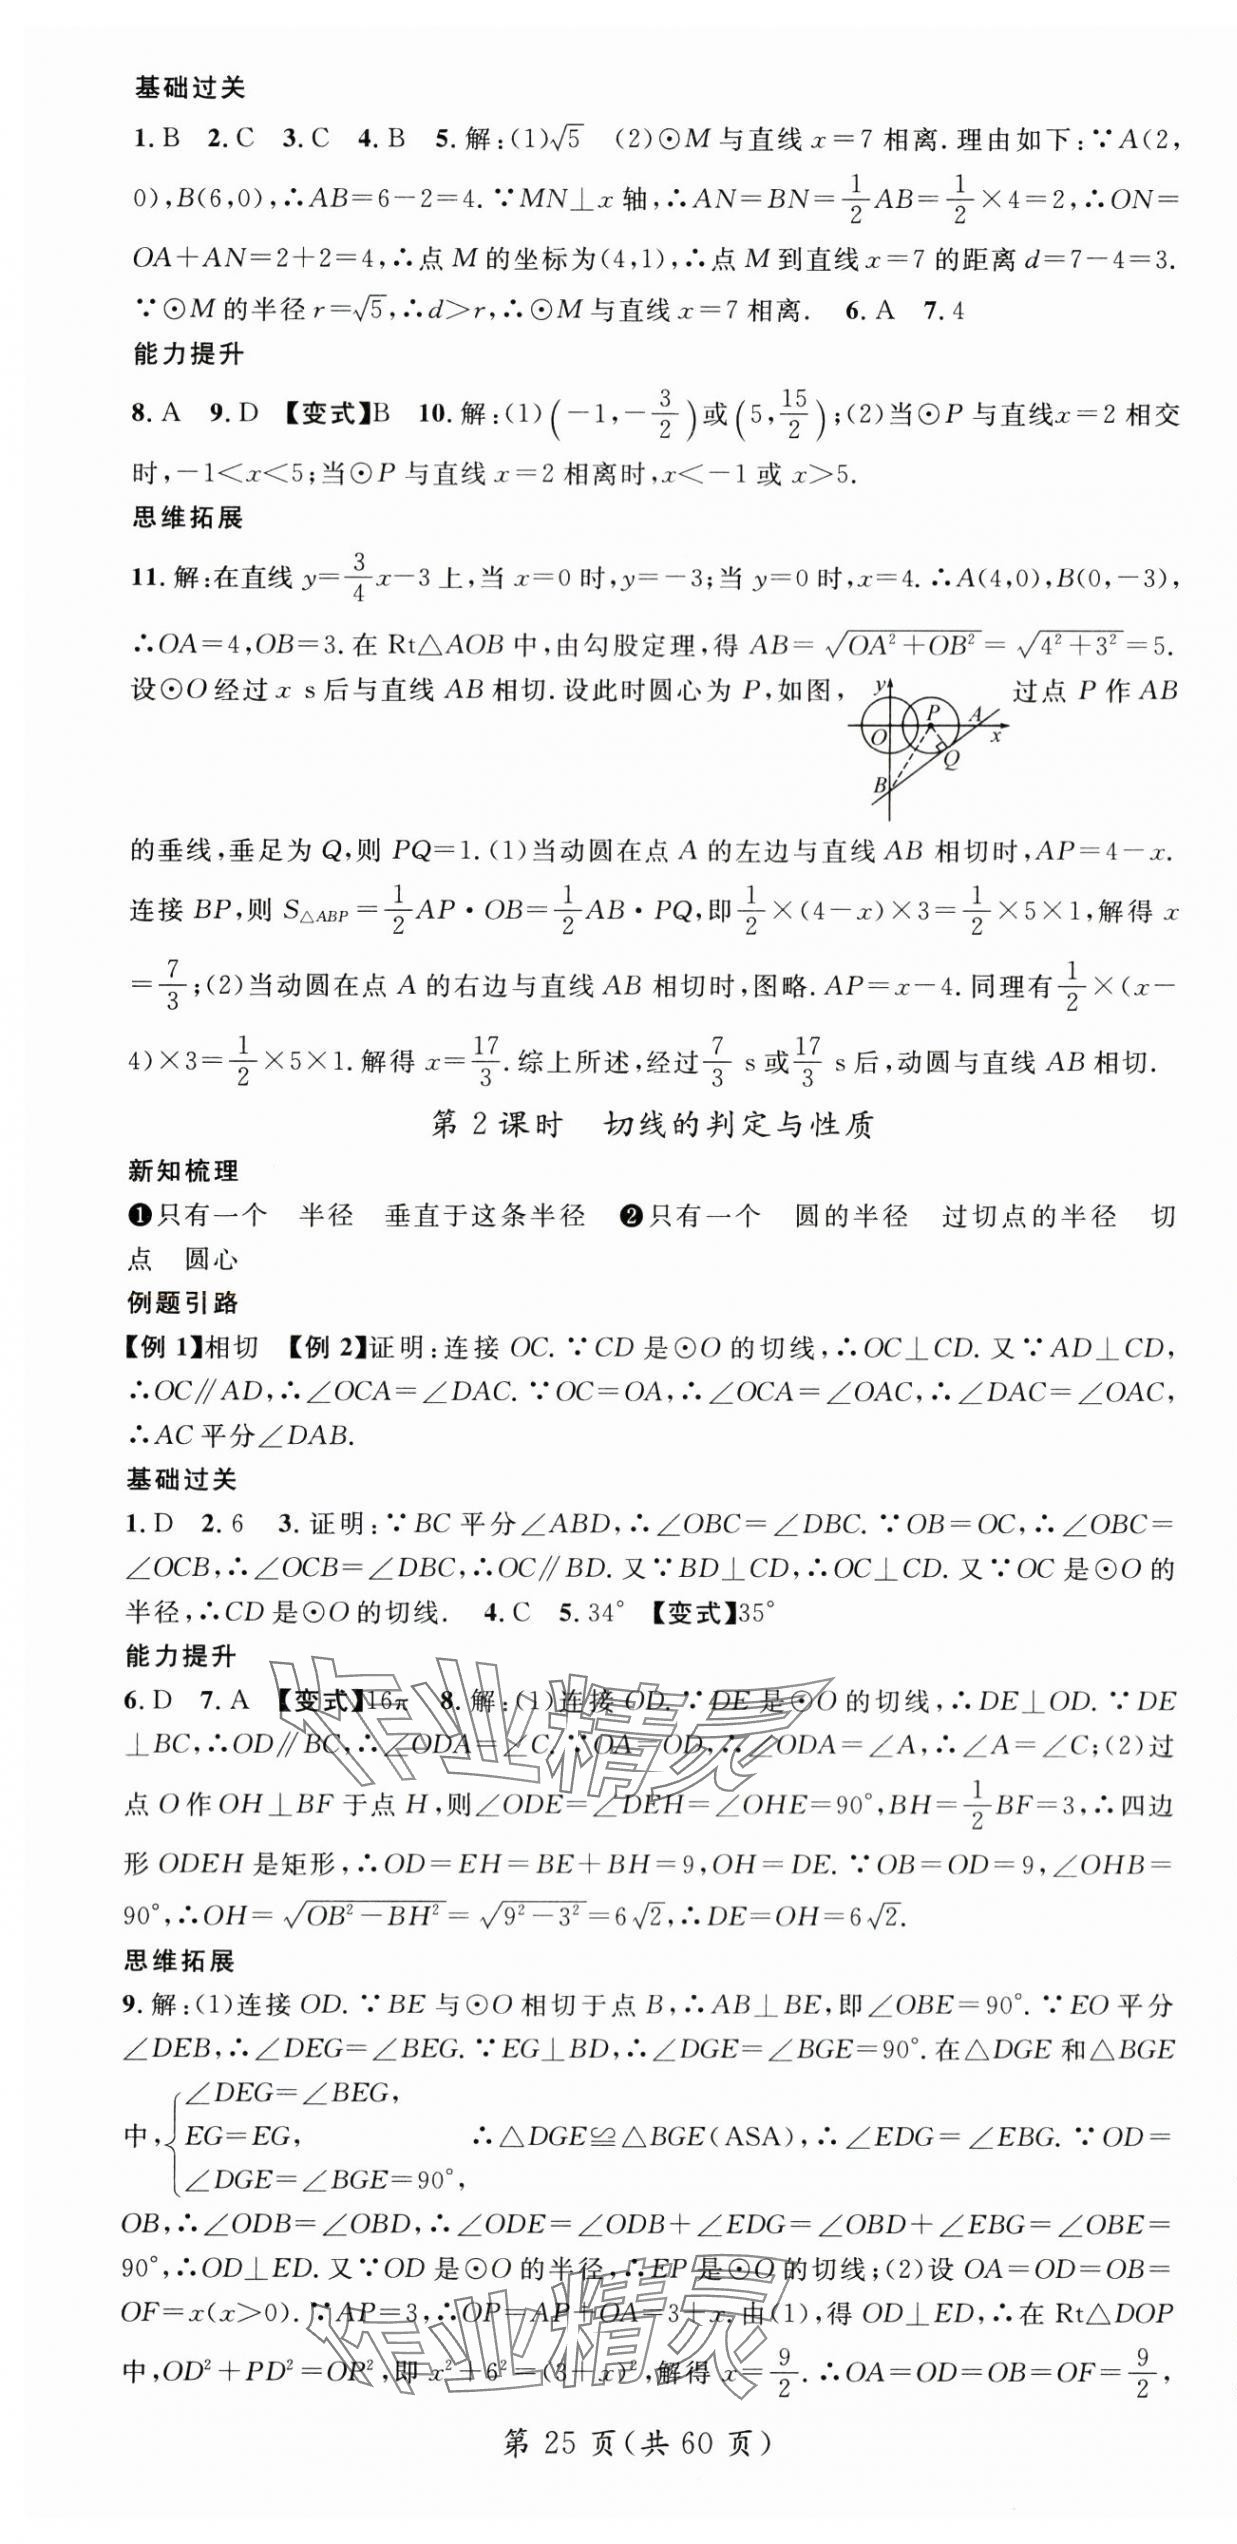 基础过关
1. B 2. C 3. C 4. B 5. 解:(1)√5 (2)⊙M与直线x=7相离.理由如下:∵A(2,
0),B(6,0),∴AB=6-2=4.∵MN⊥x轴,∴AN=BN=1/2AB=1/2×4=2,∴ON=
OA+AN=2+2=4,∴点M的坐标为(4,1),∴点M到直线x=7的距离d=7-4=3.
∵⊙M的半径r=√5,∴d>r,∴⊙M与直线x=7相离. 6. A 7. 4
能力提升
8. A 9. D 【变式】B 10. 解:(1)(-1,-3/2)或(5,15/2);(2)当⊙P与直线x=2相交
时,-1<x<5;当⊙P与直线x=2相离时,x<-1或x>5.
思维拓展
11. 解:在直线y=3/4x-3上,当x=0时,y=-3;当y=0时,x=4.∴A(4,0),B(0,-3),
∴OA=4,OB=3.在Rt△AOB中,由勾股定理,得AB=√(OA²+OB²)=√(4²+3²)=5.
设⊙O经过x s后与直线AB相切.设此时圆心为P,如图, 过点P作AB
y
P
A
O
x
Q
B
的垂线,垂足为Q,则PQ=1.(1)当动圆在点A的左边与直线AB相切时,AP=4-x.
连接BP,则S△ABP=1/2AP·OB=1/2AB·PQ,即1/2×(4-x)×3=1/2×5×1,解得x
=7/3;(2)当动圆在点A的右边与直线AB相切时,图略.AP=x-4.同理有1/2×(x-
4)×3=1/2×5×1.解得x=17/3.综上所述,经过7/3 s或17/3 s后,动圆与直线AB相切.
第2课时 切线的判定与性质
新知梳理
❶只有一个 半径 垂直于这条半径 ❷只有一个 圆的半径 过切点的半径 切
点 圆心
例题引路
【例1】相切 【例2】证明:连接OC.∵CD是⊙O的切线,∴OC⊥CD.又∵AD⊥CD,
∴OC∥AD,∴∠OCA=∠DAC.∵OC=OA,∴∠OCA=∠OAC,∴∠DAC=∠OAC,
∴AC平分∠DAB.
基础过关
1. D 2. 6 3. 证明:∵BC平分∠ABD,∴∠OBC=∠DBC.∵OB=OC,∴∠OBC=
∠OCB,∴∠OCB=∠DBC,∴OC∥BD.又∵BD⊥CD,∴OC⊥CD.又∵OC是⊙O的
半径,∴CD是⊙O的切线. 4. C 5. 34° 【变式】35°
能力提升
6. D 7. A 【变式】16π 8. 解:(1)连接OD.∵DE是⊙O的切线,∴DE⊥OD.∵DE
⊥BC,∴OD∥BC,∴∠ODA=∠C.∵OA=OD,∴∠ODA=∠A,∴∠A=∠C;(2)过
点O作OH⊥BF于点H,则∠ODE=∠DEH=∠OHE=90°,BH=1/2BF=3,∴四边
形ODEH是矩形,∴OD=EH=BE+BH=9,OH=DE.∵OB=OD=9,∠OHB=
90°,∴OH=√(OB²-BH²)=√(9²-3²)=6√2,∴DE=OH=6√2.
思维拓展
9. 解:(1)连接OD.∵BE与⊙O相切于点B,∴AB⊥BE,即∠OBE=90°.∵EO平分
∠DEB,∴∠DEG=∠BEG.∵EG⊥BD,∴∠DGE=∠BGE=90°.在△DGE和△BGE
∠DEG=∠BEG,
中,{EG=EG, ∴△DGE≌△BGE(ASA),∴∠EDG=∠EBG.∵OD=
∠DGE=∠BGE=90°,
OB,∴∠ODB=∠OBD,∴∠ODE=∠ODB+∠EDG=∠OBD+∠EBG=∠OBE=
90°,∴OD⊥ED.又∵OD是⊙O的半径,∴EP是⊙O的切线;(2)设OA=OD=OB=
OF=x(x>0).∵AP=3,∴OP=AP+OA=3+x.由(1),得OD⊥ED,∴在Rt△DOP
中,OD²+PD²=OP²,即x²+6²=(3+x)²,解得x=9/2.∴OA=OD=OB=OF=9/2,
第25页(共60页)
作业精灵
作业精灵